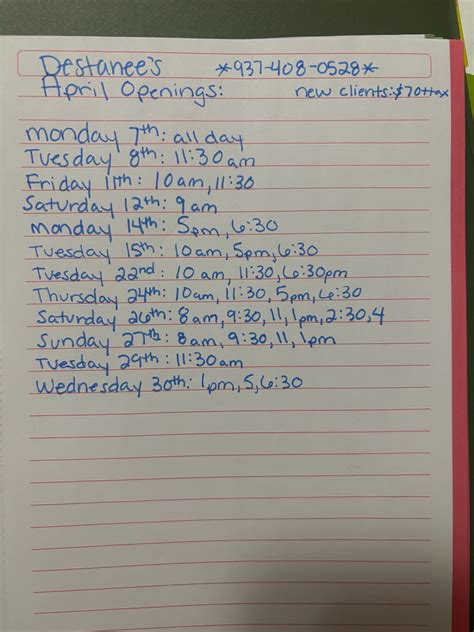 Destanee's *937-408-0528*
April Openings: new clients: $70+tax
monday 7th: all day
Tuesday 8th: 11:30am
Friday 11th: 10am, 11:30
Saturday 12th: 9am
monday 14th: 5pm, 6:30
Tuesday 15th: 10am, 5pm, 6:30
Tuesday 22nd: 10am, 11:30, 6:30pm
Thursday 24th: 10am, 11:30, 5pm, 6:30
Saturday 26th: 8am, 9:30, 11, 1pm, 2:30, 4
Sunday 27th: 8am, 9:30, 11, 1pm
Tuesday 29th: 11:30am
Wednesday 30th: 1pm, 5, 6:30